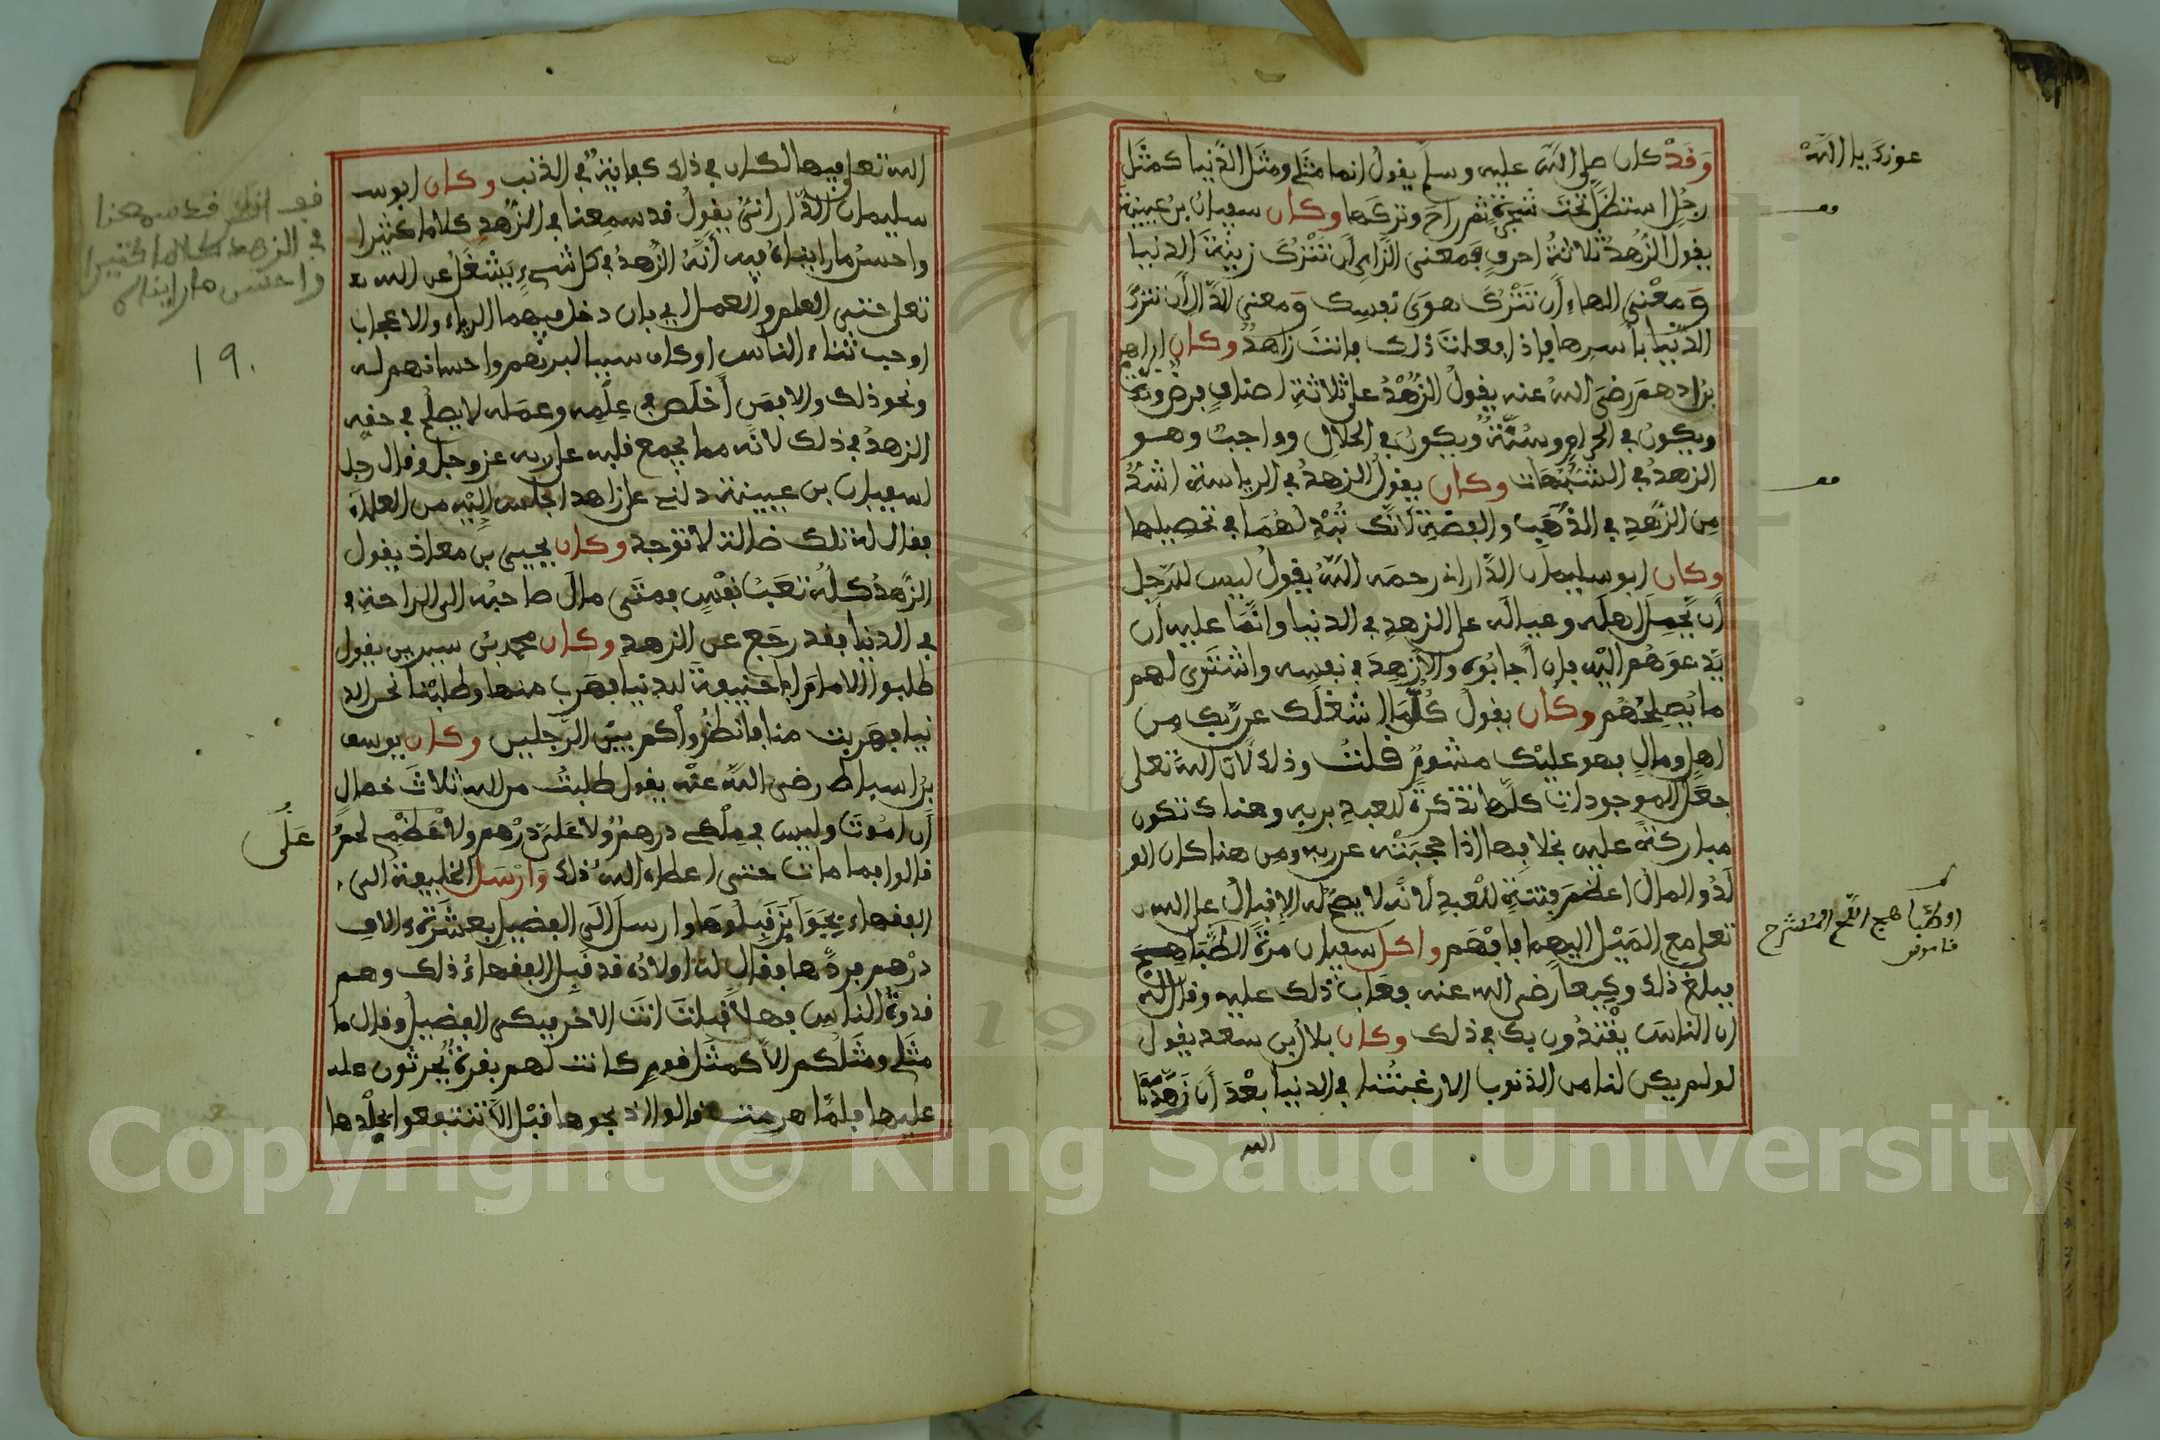 وقد كان صلى الله عليه وسلم يقول انما مثلي ومثل الدنيا كمثل
رجل استظل تحت شجرة ثم راح وتركها وكان سفيان بن عيينة
يقول الزهد ثلاثة احرف فمعنى الزاي ان تترك زينة الدنيا
ومعنى الهاء ان تترك هوى نفسك ومعنى الدال ان تترك
الدنيا باسرها فاذا فعلت ذلك فانت زاهد وكان ابراهيم
بن ادهم رضي الله عنه يقول الزهد على ثلاثة اصناف فرض
ويكون في الحرام وسنة ويكون في الحلال وواجب وهو
الزهد في الشبهات وكان يقول الزهد في الرياسة اشد
من الزهد في الذهب والفضة لانك تبذلهما في تحصيلها
وكان ابو سليمان الداراني رحمه الله يقول ليس للرجل
ان يحمل اهله وعياله على الزهد في الدنيا وانما عليه ان
يدعوهم اليه فان اجابوه والا زهد في نفسه واشترى لهم
ما يصلحهم وكان يقول كلما شغلك عن ربك من
اهل ومال فهو عليك مشوم قلت وذلك لان الله تعلى
جعل الموجودات كلها تذكرة للعبد بربه وهناك تكون
مباركة عليه بخلافها اذا حجبته عن ربه ومن هنا كان الو
لد والمال اعظم فتنة للعبد لانه لا يصح له الاقبال على الله
تعلى مع الميل اليهما فافهم واكل سفيان مرة الطباهج
فبلغ ذلك وكيعا رضي الله عنه فعاب ذلك عليه وقال له
ان الناس يقتدون بك في ذلك وكان بلال بن سعد يقول
لو لم يكن لنا من الذنوب الا رغبتنا في الدنيا بعد ان زهدنا
الله
عوذ بالله
قاموس
الله تعلى فيها لكان في ذلك كفاية في الذنب وكان ابو
سليمان الداراني يقول قد سمعنا في الزهد كلاما كثيرا
واحسن ما رايناه فيه انه الزهد في كل شيء يشغل عن الله
تعلى حتى العلم والعمل اي بان دخل فيهما الرياء والاعجاب
او حب ثناء الناس او كان سببا لبرهم واحسانهم له
ونحو ذلك والا فمن اخلص في علمه وعمله لا يصلح في حقه
الزهد في ذلك لانه مما يجمع قلبه على ربه عز وجل وقال رجل
لسفيان بن عيينة دلني على زاهد اجلس اليه من العلماء
فقال له تلك ضالة لا توجد وكان يحيى بن معاذ يقول
الزهد كله تعب نفس فمتى مال صاحبه الى الراحة
في الدنيا فقد رجع عن الزهد وكان محمد بن سيرين يقول
طلبوا الامام ابا حنيفة للدنيا فهرب منها وطلبنا نحن الد
نيا فهربت منا فانظروا كم بين الرجلين وكان يوسف
بن اسباط رضي الله عنه يقول طلبت من الله ثلاث خصال
ان اموت وليس في ملكي درهم ولا علي درهم ولا عظم لحم
قالوا فما مات حتى اعطاه الله ذلك وارسل الخليفة الى
الفقهاء بجوائز فقبلوها وارسل الى الفضيل بعشرة الاف
درهم فردها فقال له اولاده قد قبل الفقهاء ذلك وهم
قدوة الناس فهلا قبلت انت الاخر فبكى الفضيل وقال ما
مثلي ومثلكم الا كمثل قوم كانت لهم بقرة يحرثون
عليها فلما هرمت قالوا اذبحوها قبل ان تنتفعوا بجلدها
قد سمعنا
في الزهد كلاما كثيرا
واحسن ما رايناه
١٩٠